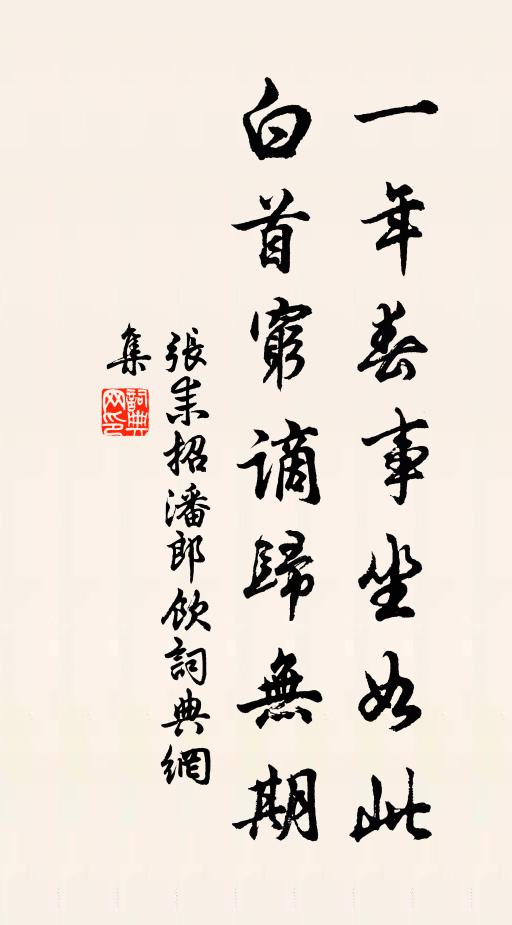 一年春事坐如此
白首窮謫歸無期
張耒招潘郎飲詞典網
集
詞典
网印